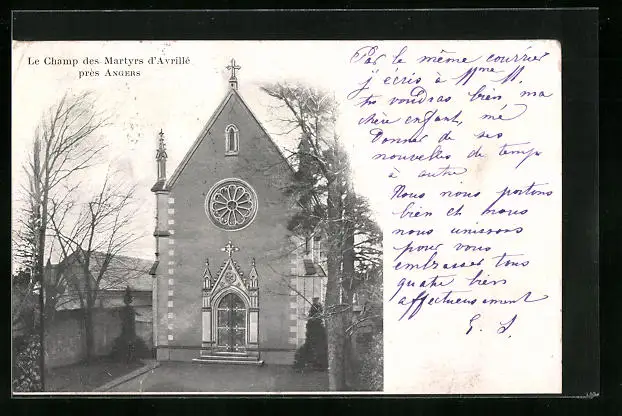 Le Champ des Martyrs d'Avrillé
près ANGERS
Par le même courrier
j'écris à Mme M.
tu voudras bien, ma
chère enfant, me
donner de ses
nouvelles de temps
à autre
Nous nous portons
bien et nous
nous unissons
pour vous
embrasser tous
quatre bien
affectueusement
E. S.